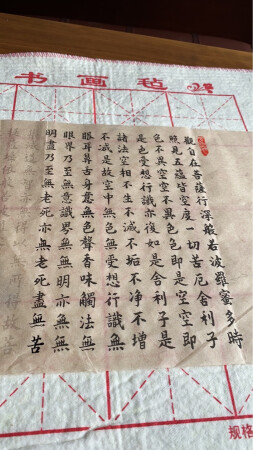 书画毡
觀自在菩薩行深般若波羅蜜多時
照見五蘊皆空度一切苦厄舍利子
色不異空空不異色色即是空空即
是色受想行識亦復如是舍利子是
諸法空相不生不滅不垢不净不增
不減是故空中無色無受想行識無
眼耳鼻舌身意無色聲香味觸法無
眼界乃至無意識界無無明亦無無
明盡乃至無老死亦無老死盡無苦
规格